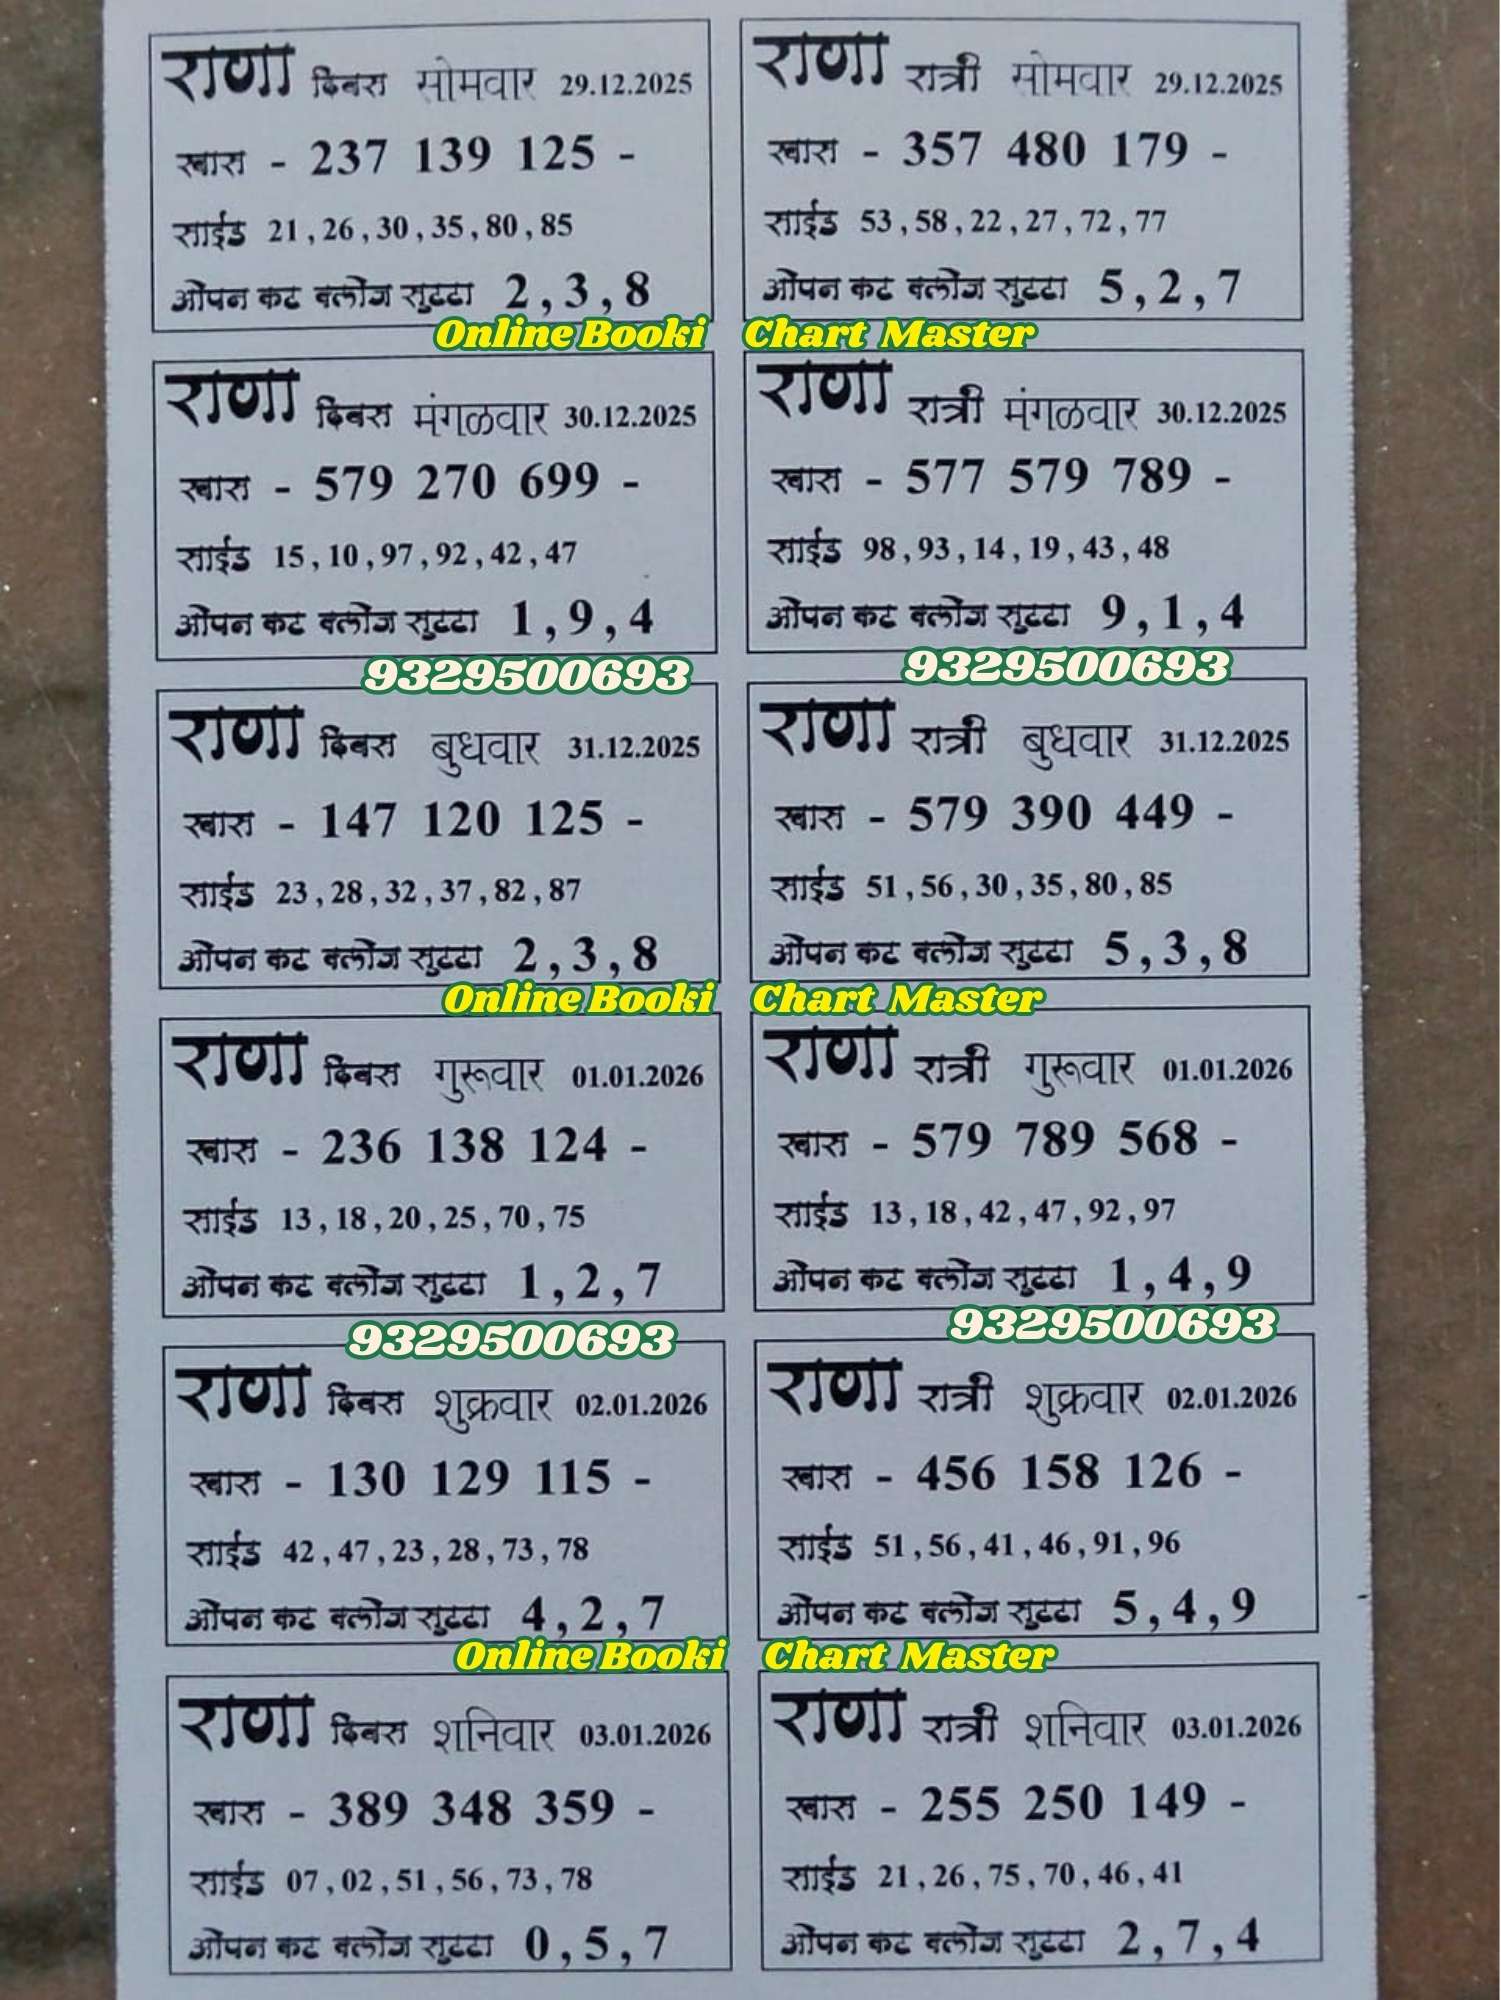 राणा दिवस सोमवार 29.12.2025
खास - 237 139 125 -
साईड 21 , 26 , 30 , 35 , 80 , 85
ओपन कट क्लोज सुटटा 2 , 3 , 8
राणा रात्री सोमवार 29.12.2025
खास - 357 480 179 -
साईड 53 , 58 , 22 , 27 , 72 , 77
ओपन कट क्लोज सुटटा 5 , 2 , 7
Online Booki Chart Master
राणा दिवस मंगळवार 30.12.2025
खास - 579 270 699 -
साईड 15 , 10 , 97 , 92 , 42 , 47
ओपन कट क्लोज सुटटा 1 , 9 , 4
राणा रात्री मंगळवार 30.12.2025
खास - 577 579 789 -
साईड 98 , 93 , 14 , 19 , 43 , 48
ओपन कट क्लोज सुटटा 9 , 1 , 4
9329500693 9329500693
राणा दिवस बुधवार 31.12.2025
खास - 147 120 125 -
साईड 23 , 28 , 32 , 37 , 82 , 87
ओपन कट क्लोज सुटटा 2 , 3 , 8
राणा रात्री बुधवार 31.12.2025
खास - 579 390 449 -
साईड 51 , 56 , 30 , 35 , 80 , 85
ओपन कट क्लोज सुटटा 5 , 3 , 8
Online Booki Chart Master
राणा दिवस गुरूवार 01.01.2026
खास - 236 138 124 -
साईड 13 , 18 , 20 , 25 , 70 , 75
ओपन कट क्लोज सुटटा 1 , 2 , 7
राणा रात्री गुरूवार 01.01.2026
खास - 579 789 568 -
साईड 13 , 18 , 42 , 47 , 92 , 97
ओपन कट क्लोज सुटटा 1 , 4 , 9
9329500693 9329500693
राणा दिवस शुक्रवार 02.01.2026
खास - 130 129 115 -
साईड 42 , 47 , 23 , 28 , 73 , 78
ओपन कट क्लोज सुटटा 4 , 2 , 7
राणा रात्री शुक्रवार 02.01.2026
खास - 456 158 126 -
साईड 51 , 56 , 41 , 46 , 91 , 96
ओपन कट क्लोज सुटटा 5 , 4 , 9
Online Booki Chart Master
राणा दिवस शनिवार 03.01.2026
खास - 389 348 359 -
साईड 07 , 02 , 51 , 56 , 73 , 78
ओपन कट क्लोज सुटटा 0 , 5 , 7
राणा रात्री शनिवार 03.01.2026
खास - 255 250 149 -
साईड 21 , 26 , 75 , 70 , 46 , 41
ओपन कट क्लोज सुटटा 2 , 7 , 4